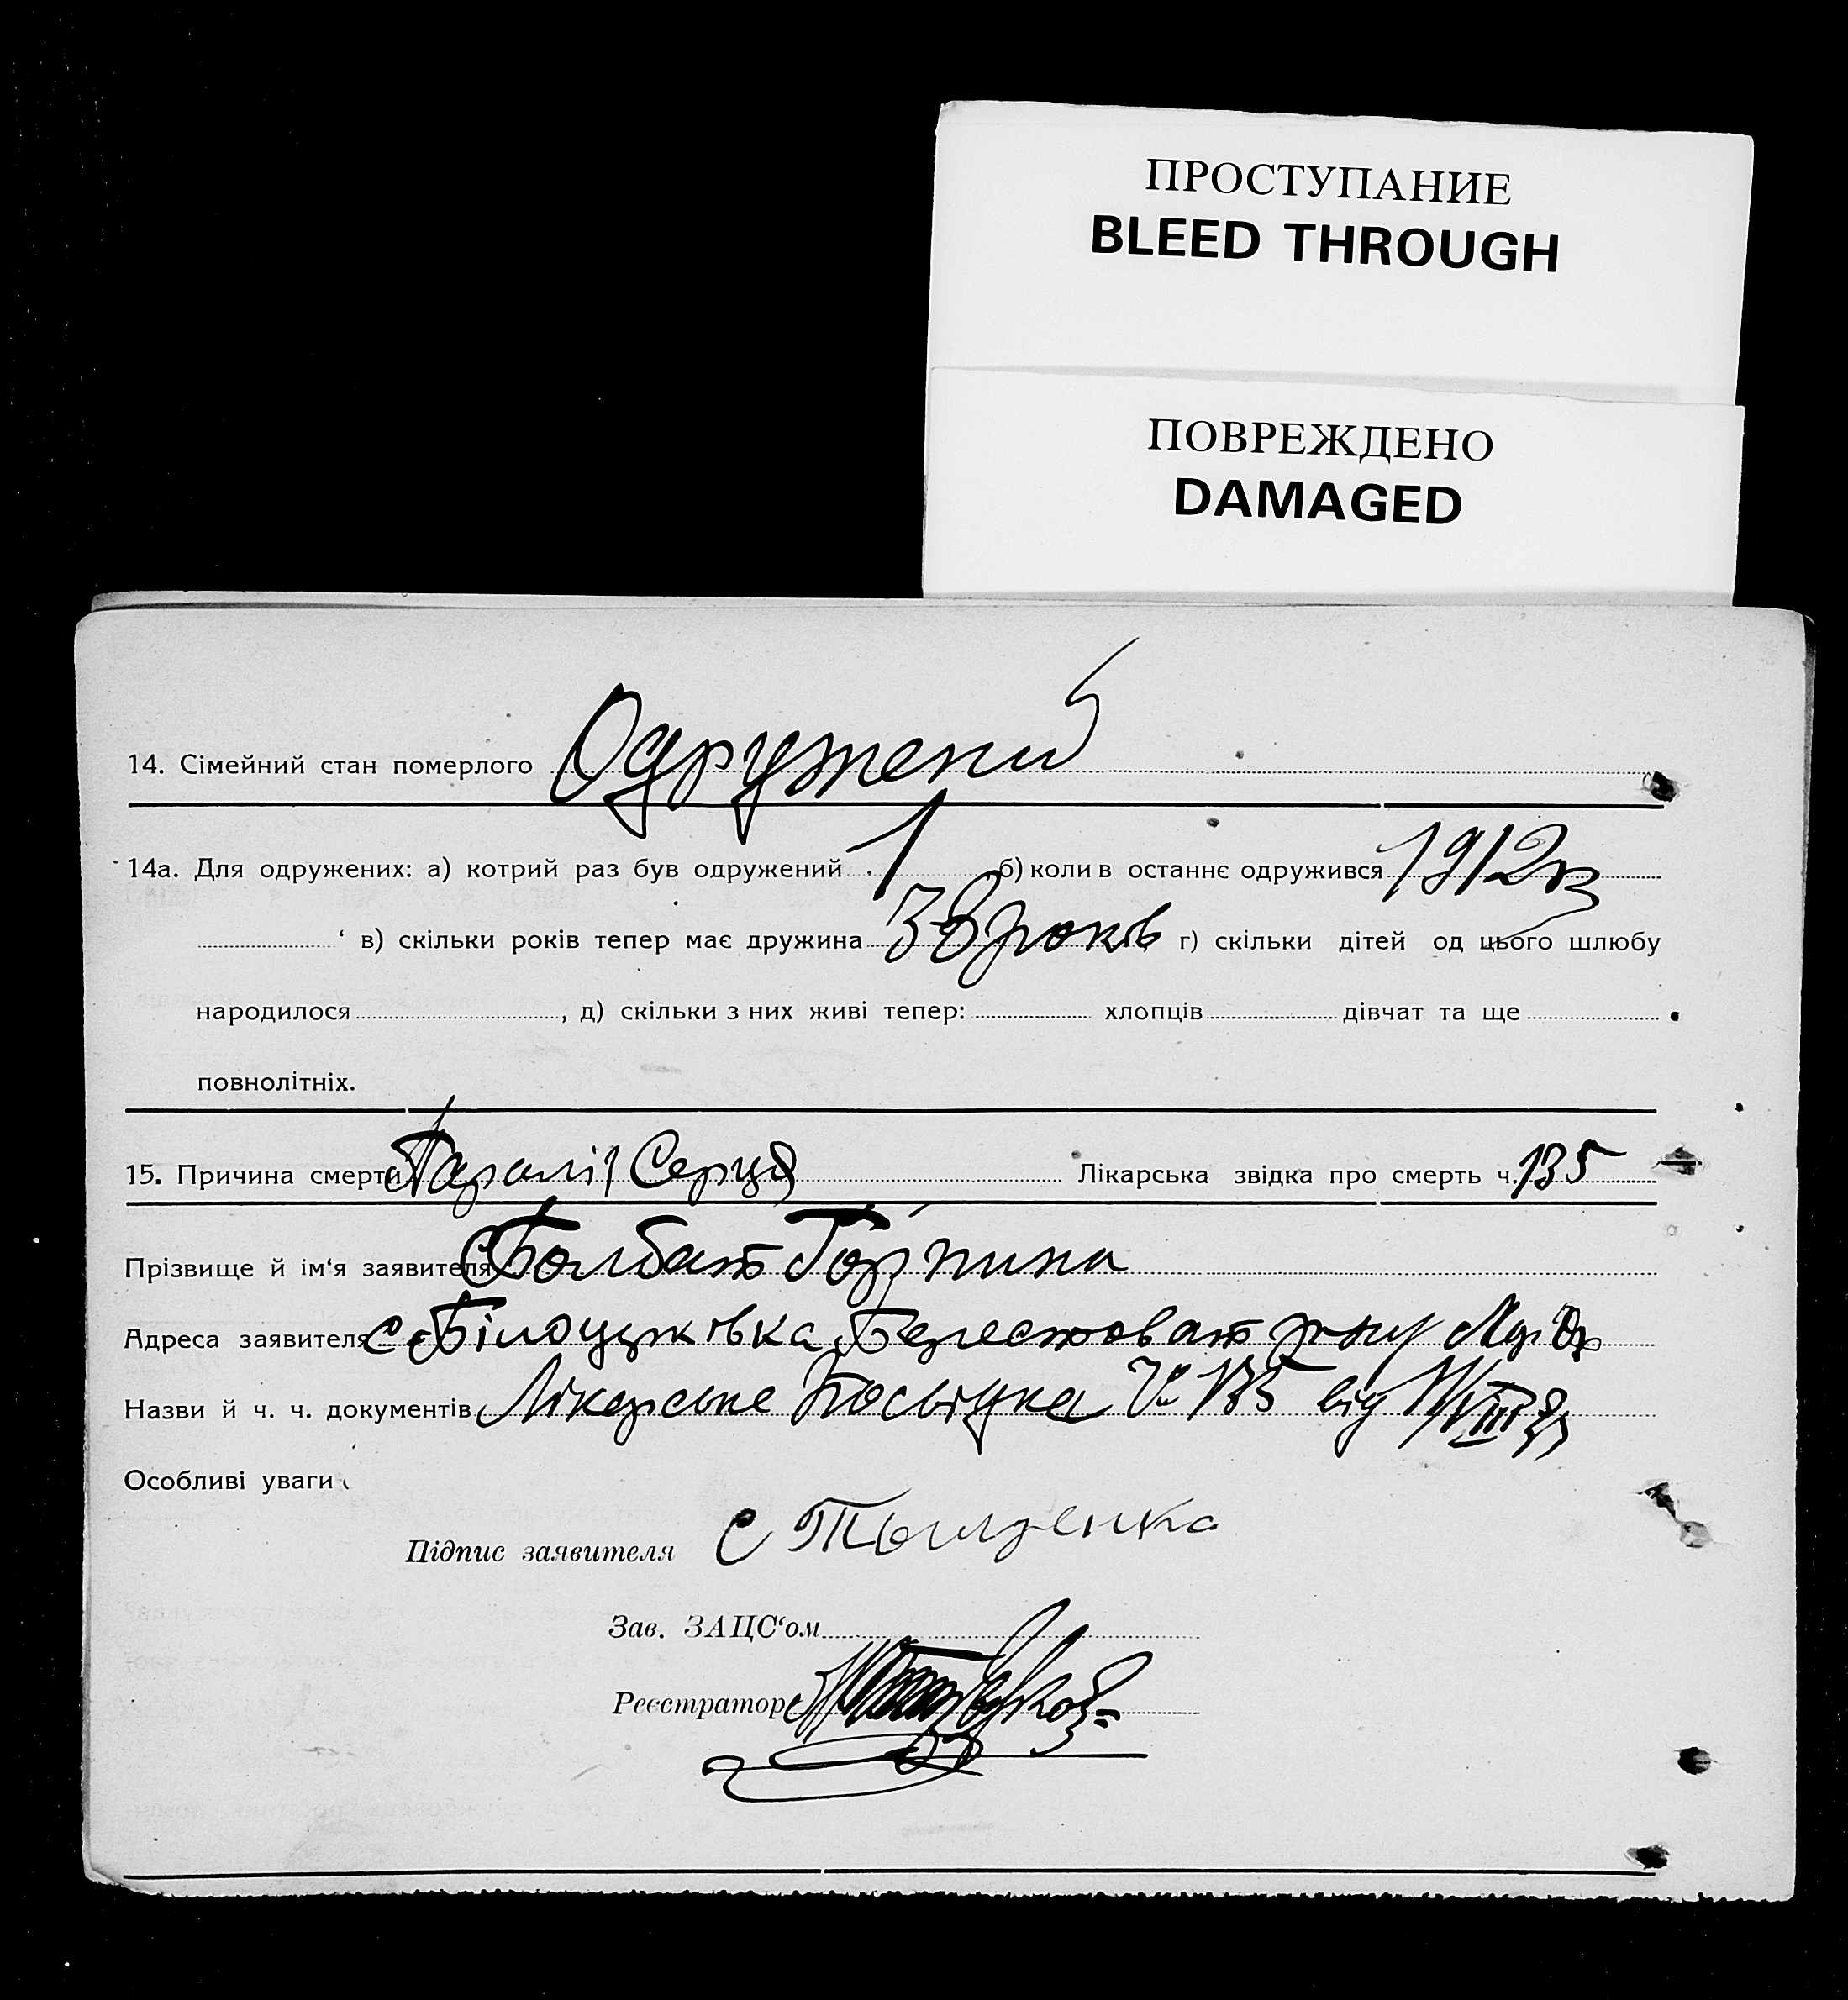 ПРОСТУПАНИЕ
BLEED THROUGH
ПОВРЕЖДЕНО
DAMAGED
14. Сімейний стан померлого Одружений
14а. Для одружених: а) котрий раз був одружений 1 б) коли в останнє одружився 1912
в) скільки років тепер має дружина 38 років г) скільки дітей од цього шлюбу
народилося , д) скільки з них живі тепер: хлопців дівчат та ще
повнолітніх.
15. Причина смерти Параліч Серця Лікарська звідка про смерть ч. 135
Прізвище й ім'я заявителя Балбат Горпина
Адреса заявителя с
Назви й ч. ч. документів Лікарське № 135 від
Особливі уваги
Підпис заявителя
Зав. ЗАЦС'ом
Реєстратор